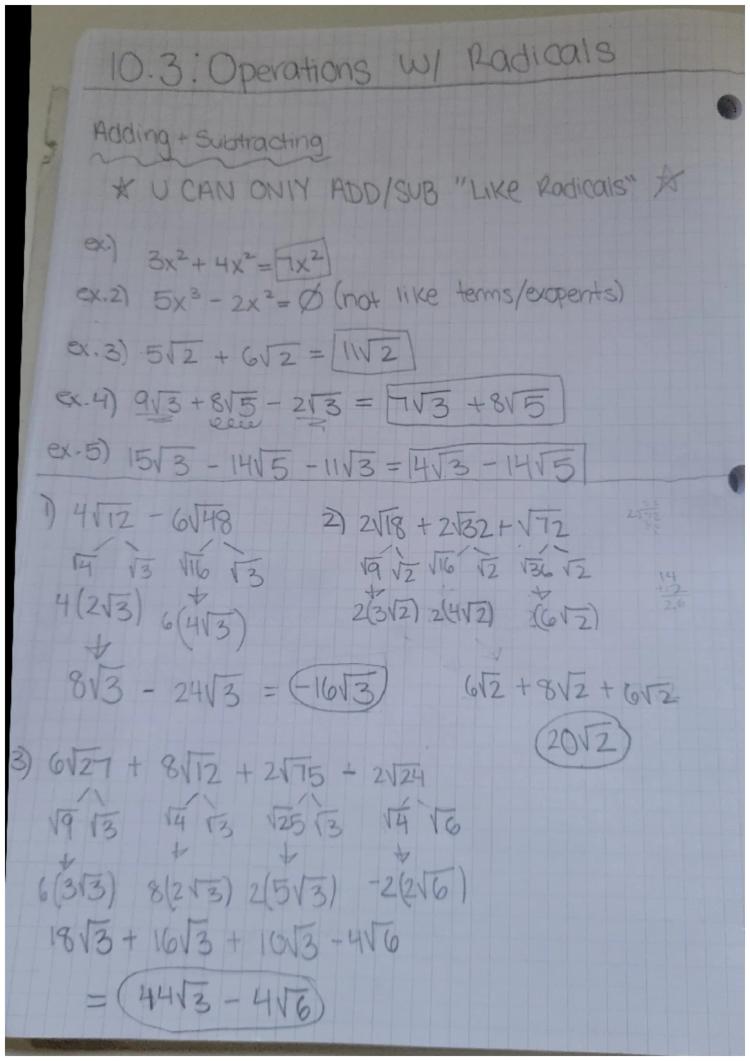 10.3: Operations w/ Radicals
Adding + Subtracting
☆ U CAN ONLY ADD/SUB "Like Radicals" ☆
ex.) 3x² + 4x² = 7x²
ex.2) 5x³ - 2x² = Ø (not like terms/exopents)
ex.3) 5√2 + 6√2 = 11√2
ex.4) 9√3 + 8√5 - 2√3 = 7√3 + 8√5
ex.5) 15√3 - 14√5 - 11√3 = 4√3 - 14√5
1) 4√12 - 6√48
√4 √3 √16 √3
4(2√3) 6(4√3)
8√3 - 24√3 = -16√3
2) 2√18 + 2√32 + √72
√9 √2 √16 √2 √36 √2
2(3√2) 2(4√2) (6√2)
6√2 + 8√2 + 6√2
20√2
3) 6√27 + 8√12 + 2√75 - 2√24
√9 √3 √4 √3 √25 √3 √4 √6
6(3√3) 8(2√3) 2(5√3) -2(2√6)
18√3 + 16√3 + 10√3 - 4√6
= 44√3 - 4√6